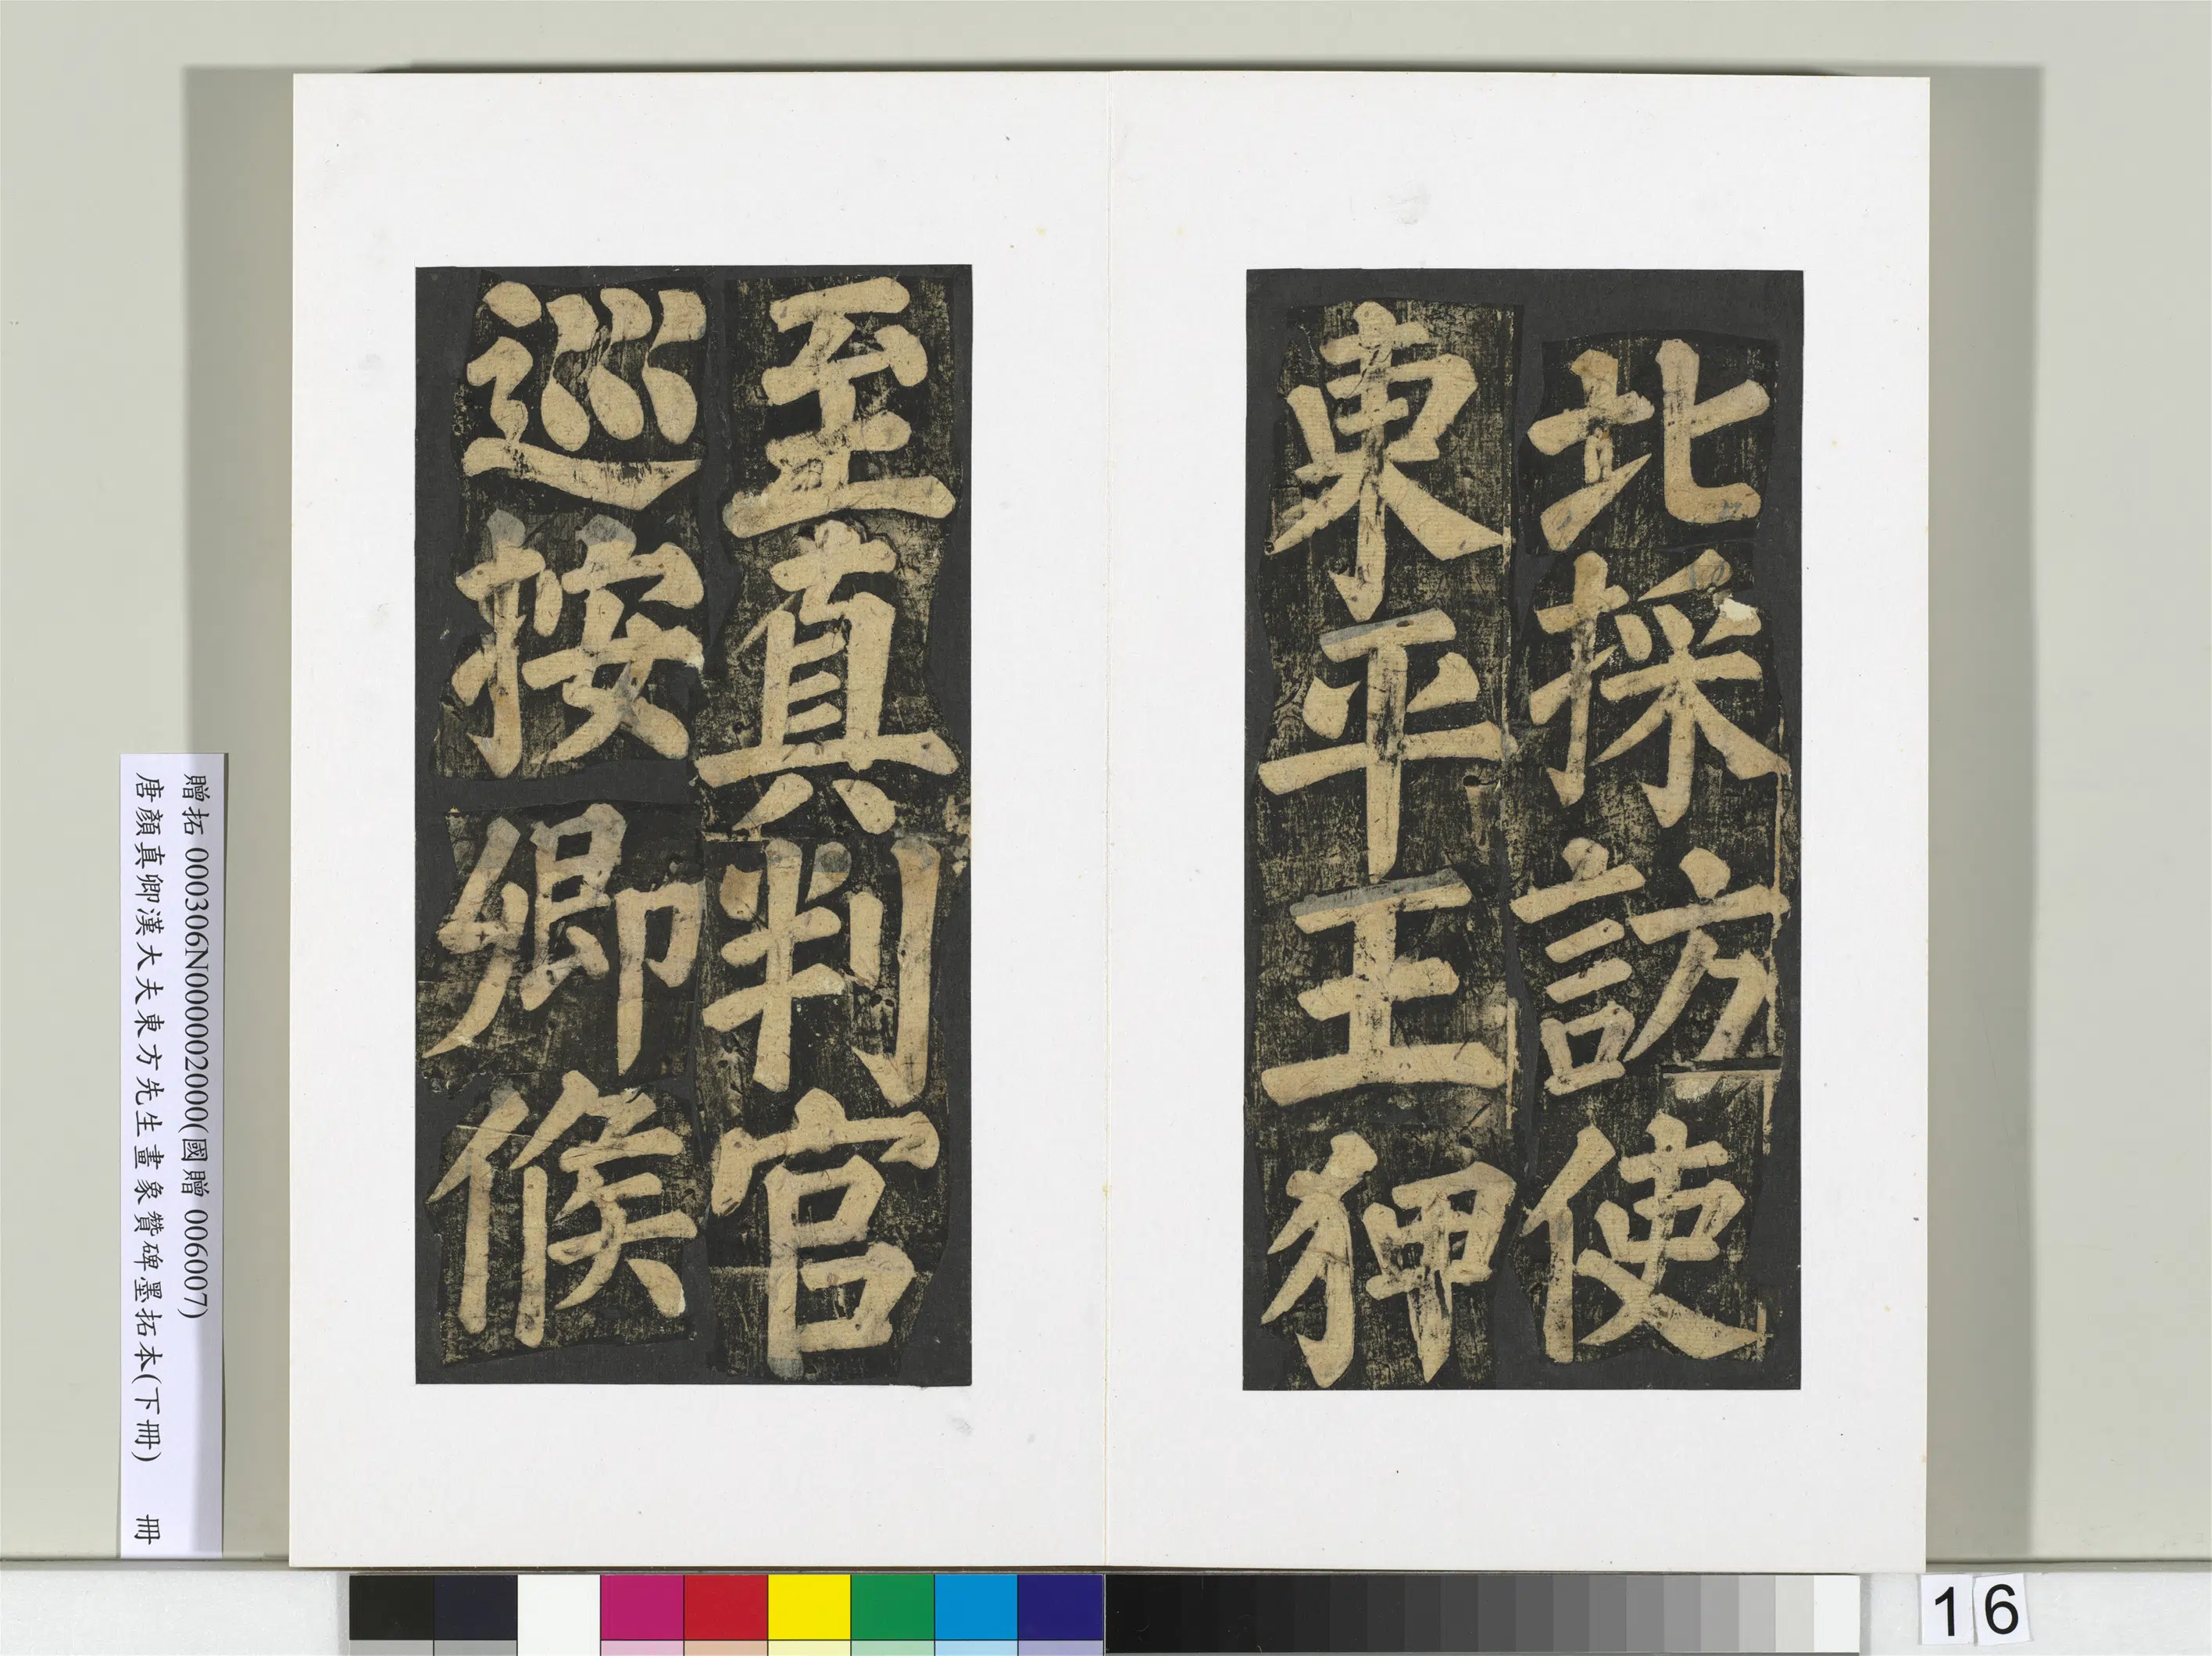 北採訪使
東平王狎
至真判官
巡按卿候
贈拓 000306N000002000(國贈 006007)
唐顏真卿漢大夫東方先生畫象贊碑墨拓本(下冊) 冊
16